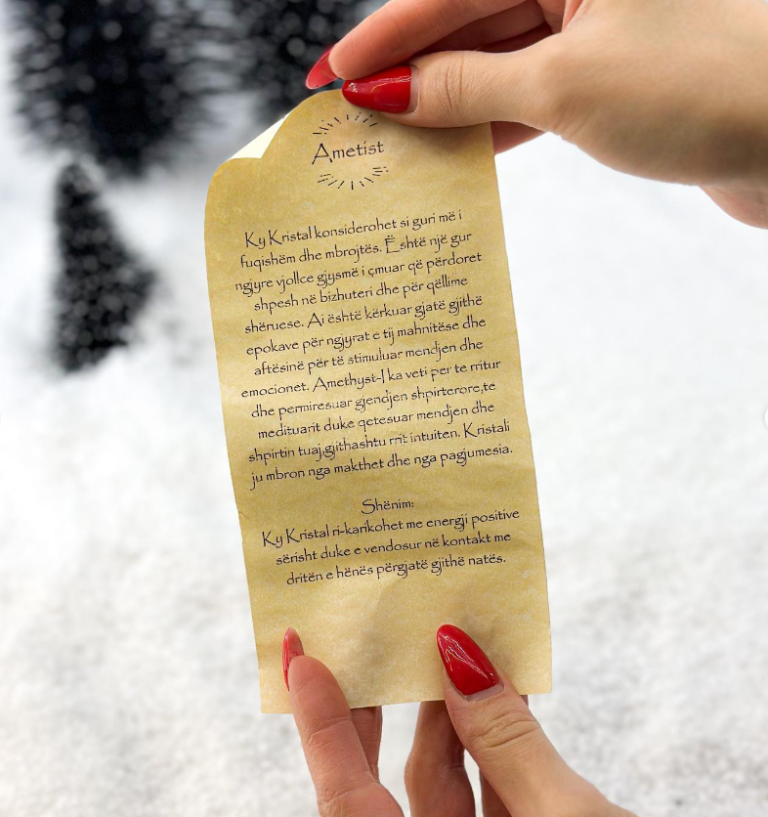 Ametist
Ky Kristal konsiderohet si guri më i
fuqishëm dhe mbrojtës. Është një gur
ngjyre vjollce gjysmë i çmuar që përdoret
shpesh në bizhuteri dhe për qëllime
shëruese. Ai është kërkuar gjatë gjithë
epokave për ngjyrat e tij mahnitëse dhe
aftësinë për të stimuluar mendjen dhe
emocionet. Amethyst-I ka veti per te rritur
dhe permiresuar gjendjen shpirterore,te
medituarit duke qetesuar mendjen dhe
shpirtin tuaj,gjithashtu rrit intuiten. Kristali
ju mbron nga makthet dhe nga pagjumesia.
Shënim:
Ky Kristal ri-karikohet me energji positive
sërisht duke e vendosur në kontakt me
dritën e hënës përgjatë gjithë natës.